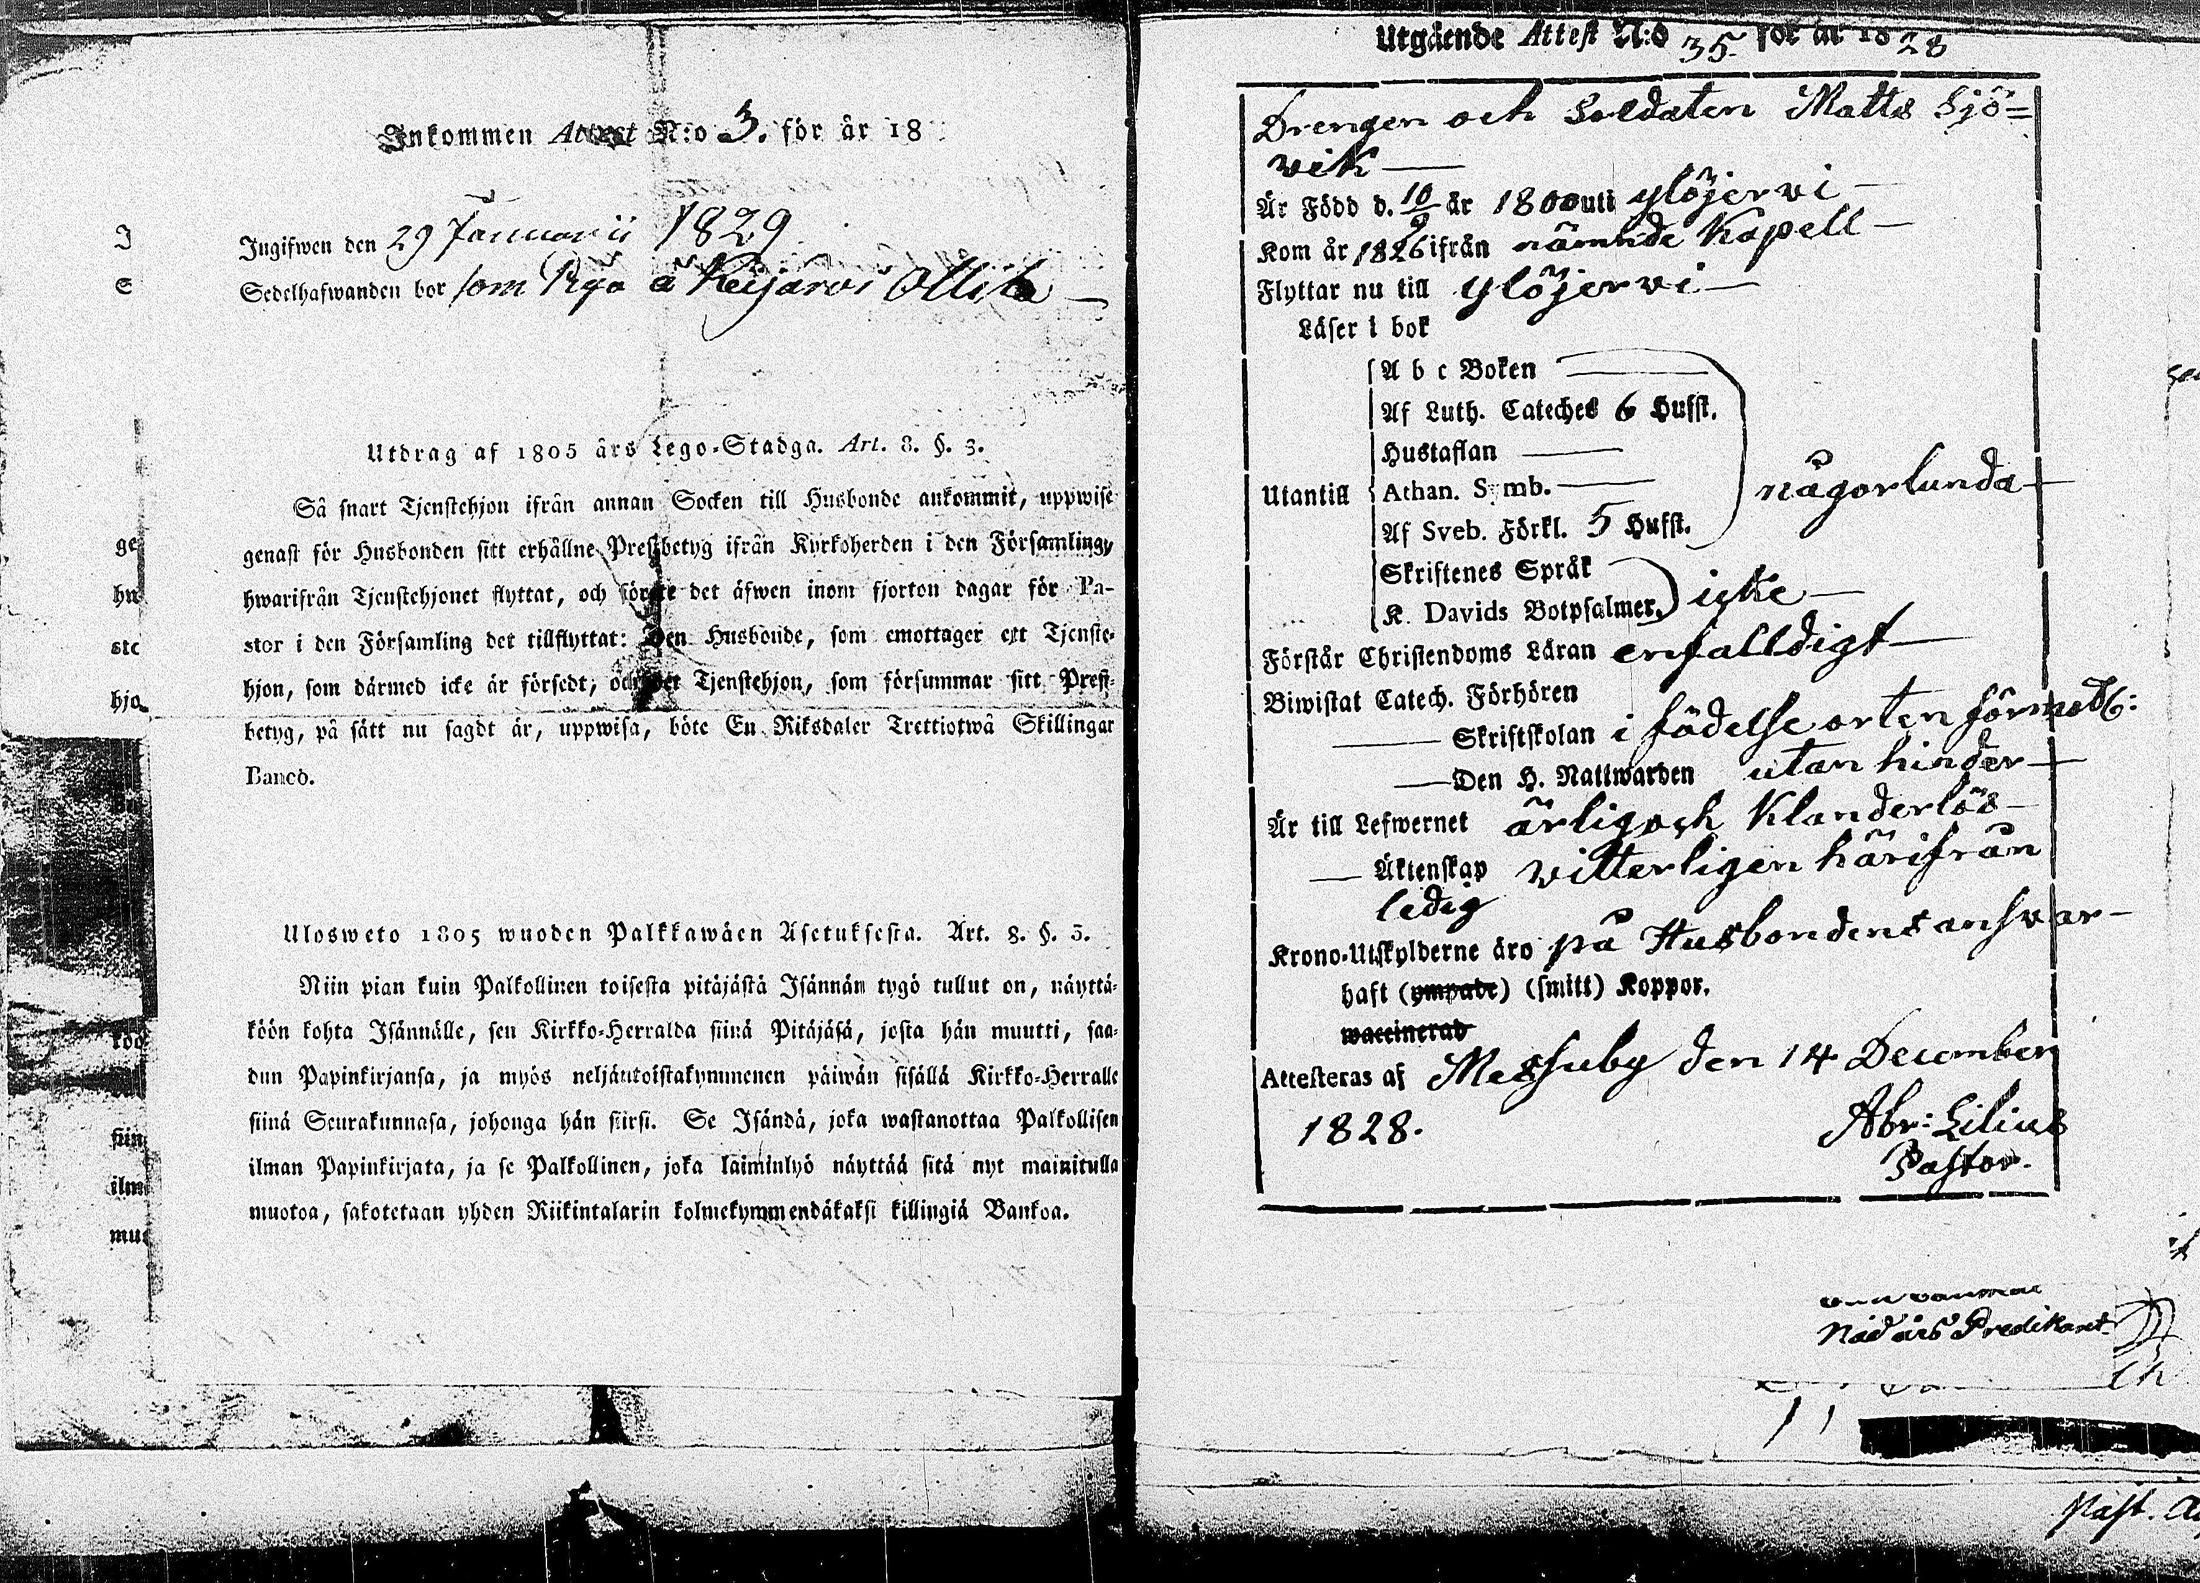 Inkommen Attest N:o 3. för år 18
Ingifwen den 29 Januarii 1829
Sedelhafwanden bor som Piga å Keijärvi Ollila
Utdrag af 1805 års Lego-Stadga. Art. 8. §. 3.
Så snart Tjenstehjon ifrån annan Socken till Husbonde ankommit, uppwise
genast för Husbonden sitt erhållne Prestbetyg ifrån Kyrkoherden i den Församling,
hwarifrån Tjenstehjonet flyttat, och förete det äfwen inom fjorton dagar för Pa-
stor i den Församling det tillflyttat: Den Husbonde, som emottager ett Tjenste-
hjon, som därmed icke är försedt, och det Tjenstehjon, som försummar sitt Prest-
betyg, på sätt nu sagdt är, uppwisa, böte En Riksdaler Trettiotwå Skillingar
Banco.
Ulosweto 1805 wuoden Palkkawäen Asetuksesta. Art. 8. §. 3.
Niin pian kuin Palkollinen toisesta pitäjästä Isännän tygö tullut on, näyttä-
köön kohta Isännälle, sen Kirkko-Herralda siinä Pitäjäsä, josta hän muutti, saa-
dun Papinkirjansa, ja myös neljäntoistakymmenen päiwän sisällä Kirkko-Herralle
siinä Seurakunnasa, johonga hän siirsi. Se Isändä, joka wastanottaa Palkollisen
ilman Papinkirjata, ja se Palkollinen, joka laiminlyö näyttää sitä nyt mainitulla
muotoa, sakotetaan yhden Riikintalarin kolmekymmendäkaksi killingiä Bankoa.
Utgående Attest N:o 35. för år 1828
Drengen och Soldaten Matts Sjö=
vik
Är Född d. 10/9 år 1800 uti Ylöjervi
Kom år 1826 ifrån nämnde Kapell
Flyttar nu till Ylöjervi
Läser i bok
A b c Boken
Af Luth. Cateches 6 Hufst.
Hustaflan
Utantill Athan. Symb. någorlunda
Af Sveb. Förkl. 5 Hufst.
Skriftenes Språk
K. Davids Botpsalmer. icke
Förstår Christendoms Läran enfalldigt
Biwistat Catech. Förhören
Skriftskolan i födelse orten förmodl:
Den H. Nattwarden utan hinder
Är till Lefwernet ärlig och klanderlös
Äktenskap vitterligen härifrån
ledig
Krono-Utskylderne äro på Husbondens answar
haft (ympade) (smitt) Koppor.
waccinerad
Attesteras af Messuby den 14 December
1828.
Abr: Lilius
Pastor.
Nådårs Predikant.
Past.